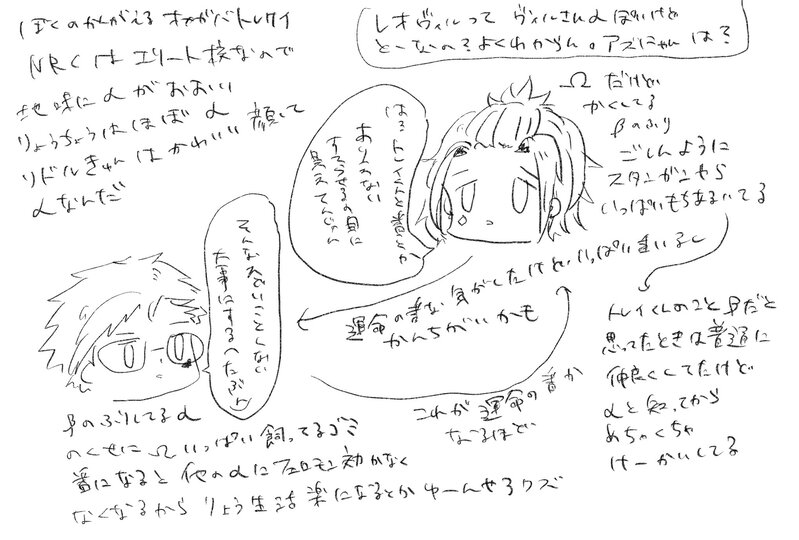 ぼくのかんがえるオメガバトレケイ
NRCはエリート校なので
地味にαがおおい
りょうちょうはほぼα
リドルきゅんはかわいい顔して
αなんだ
レオヴィルって ヴィルさんαぽいけど
どーなの?よくわからん。アズにゃんは?
Ωだけど
かくしてる
βのふり
ごしんように
スタンガンやら
いっぱいもちあるいてる
は?トレイくんと番とか
ありえない
すてられるの目に
見えてんじゃん
そんなひどいことしない
大事にする(たぶん)
運命の番な気がしたけどいっぱいいるし
かんちがいかも
これが運命の番か
なるほど
トレイくんのことβだと
思ってたときは普通に
仲良くしてたけど
αと知ってから
めちゃくちゃ
けーかいしてる
βのふりしてるα
のくせにΩいっぱい飼ってるゴミ
番になると他のαにフェロモン効かなく
なくなるからりょう生活楽になるとかゆーんせるクズ